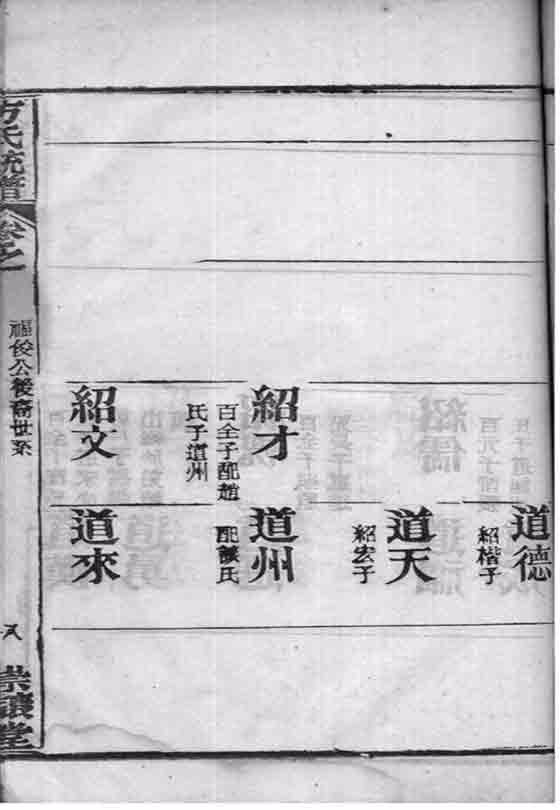 道德
紹楷子
道天
紹宏子
紹才
百全子配趙
氏子道州
道州
配談氏
紹文
道來
方氏統譜
卷之一
福俊公後裔世系
八
崇讓堂